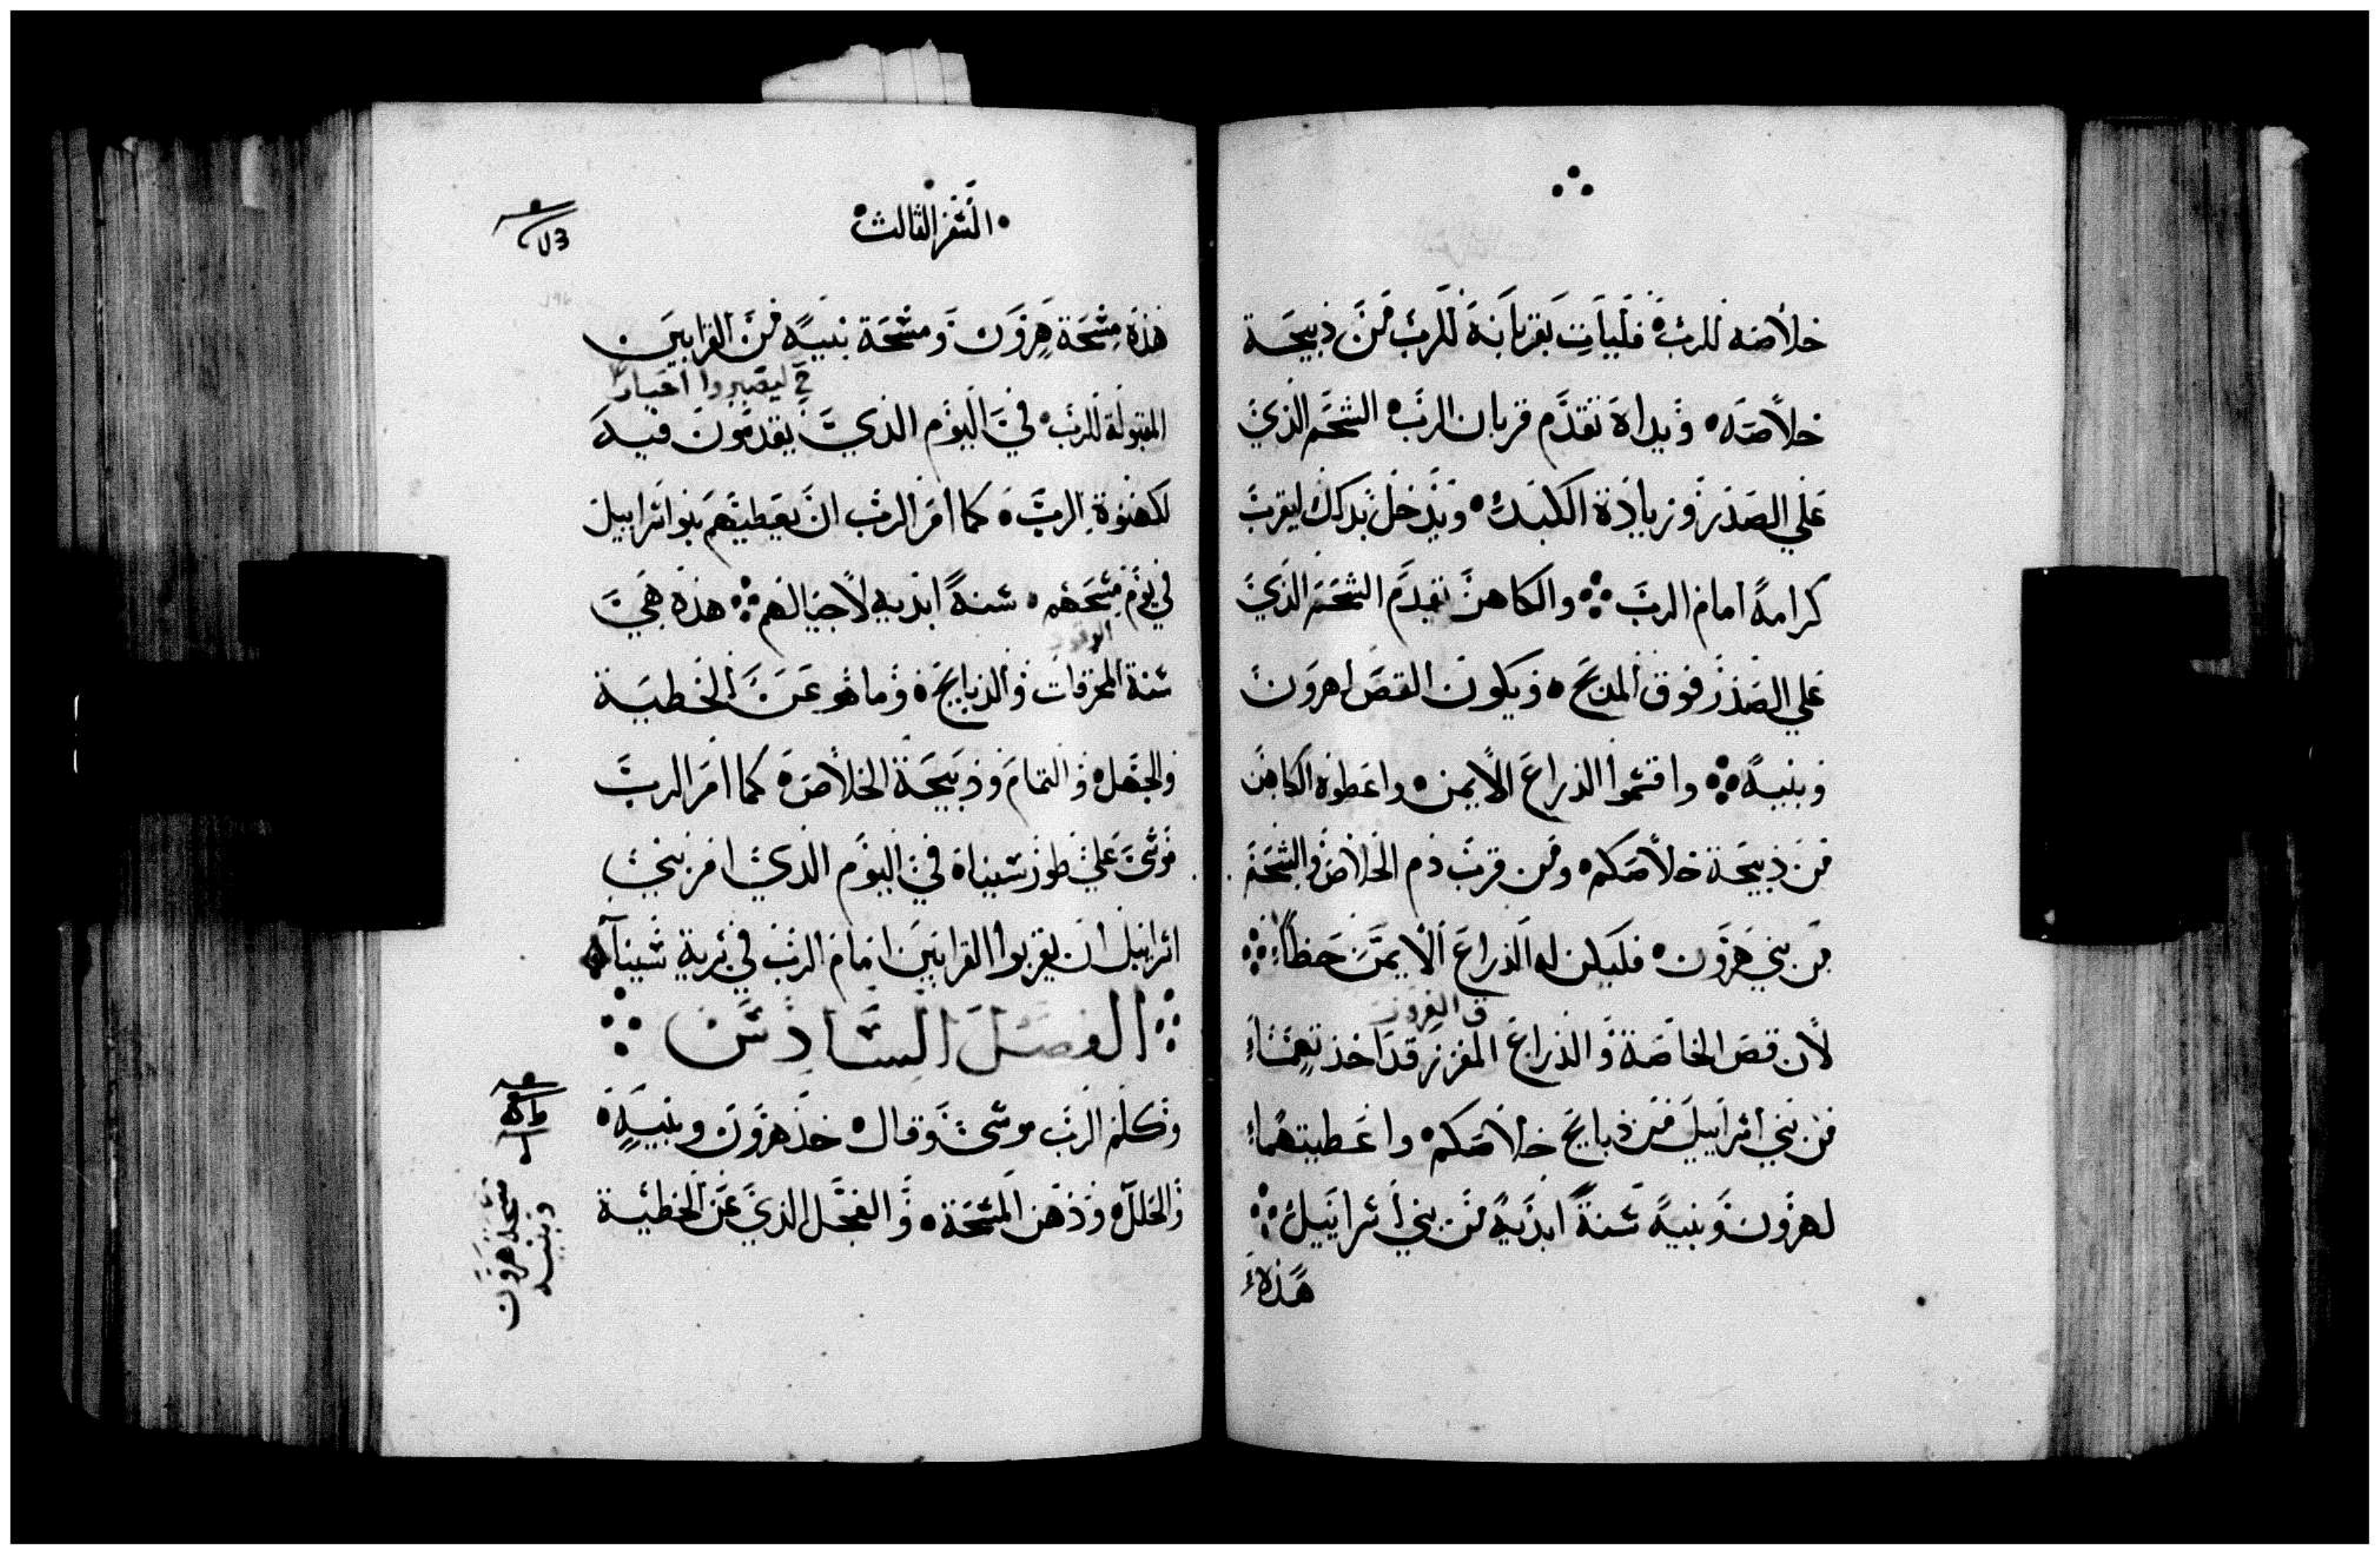 خلاصه للرب فليات بقربانه للرب من ذبيحة
خلاصه ويداه تقدم قربان الرب الشحم الذي
علي الصدر وزيادة الكبد ويدخل بذلك ليقرب
كرامة امام الرب والكاهن يقدم الشحم الذي
علي الصدر فوق المذبح ويكون القص لهرون
وبنيه واقسموا الذراع الايمن واعطوه الكاهن
من ذبيحة خلاصكم ومن قرب دم الخلاص والشحم
من بني هرون فليكن له الذراع الايمن حظا
لان قص الخاصة والذراع المفرز قد اخذتهما
من بني اسراييل من ذبايح خلاصكم واعطيتهما
لهرون وبنيه سنة ابدية من بني اسراييل
هذه
السفر الثالث
هذه مسحة هرون ومسحة بنيه من القرابين
ليصيروا احبار
المقبولة للرب في اليوم الذي يقدمون فيه
لكهنوة الرب كما امر الرب ان يعطيهم بنو اسراييل
في يوم مسحهم سنة ابدية لاجيالهم هذه هي
سنة المحرقات والذبايح وما هو عن الخطية
والجهل والتمام وذبيحة الخلاص كما امر الرب
موسى علي طور سيناء في اليوم الذي امر بني
اسراييل ان يقربوا القرابين امام الرب في برية سيناء
الفصل السادس
وكلم الرب موسى وقال خذ هرون وبنيه
والحلل ودهن المسحة والعجل الذي عن الخطية
مسحة هرون
وبنيه